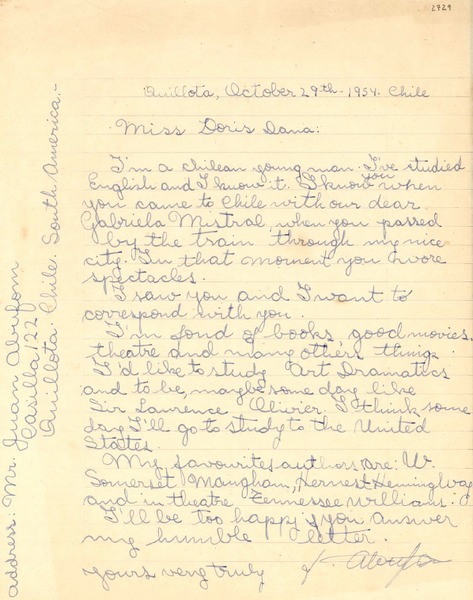 2729
Quillota, October 29th - 1954. Chile
Miss Doris Dana:
I'm a chilean young man. I've studied
English and I know it. I know you when
you came to Chile with our dear
Gabriela Mistral, when you passed
by the train through my nice
city. In that moment you wore
spectacles.
I saw you and I want to
correspond with you.
I'm fond of books, good movies,
theatre and many others things.
I'd like to study Art Dramatics
and to be, maybe some day like
Sir Laurence Olivier. I think some
day I'll go to study to the United
States.
My favourites authors are: W.
Somerset Maugham, Hernest Hemingway
and in theatre Tennessee Williams.
I'll be too happy if you answer
my humble letter.
Yours very truly
J. Abufom
address: Mr. Juan Abufom
Casilla 122
Quillota. Chile. South America.-